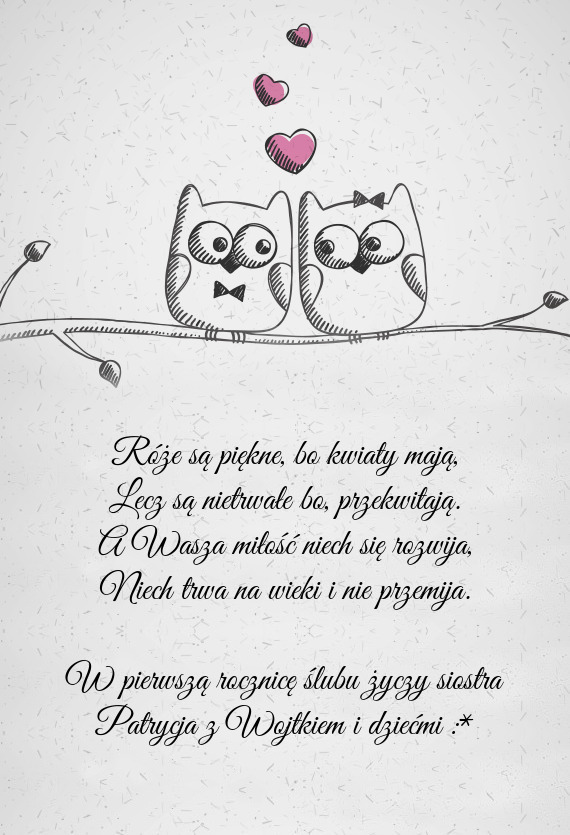 Róże są piękne, bo kwiaty mają,
Lecz są nietrwałe bo, przekwitają.
A Wasza miłość niech się rozwija,
Niech trwa na wieki i nie przemija.
W pierwszą rocznicę ślubu życzy siostra
Patrycja z Wojtkiem i dziećmi :*